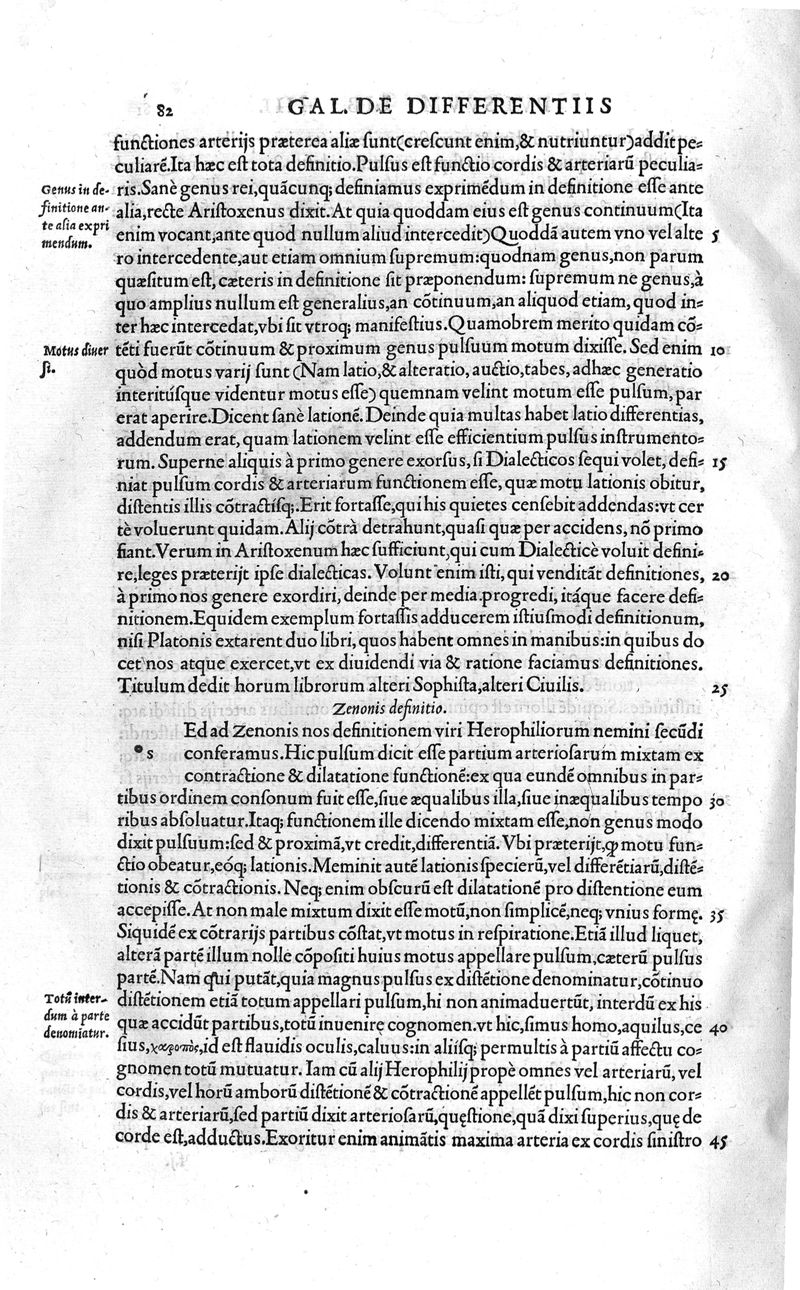 82 GAL. DE DIFFERENTIIS
functiones arterijs præterea aliæ ſunt(creſcunt enim,& nutriuntur)addit pe⸗
culiarẽ.Ita hæc eſt tota definitio.Pulſus eſt functio cordis & arteriarũ peculia⸗
Genus in de⸗ ris.Sanè genus rei,quãcunq; definiamus exprimẽdum in definitione eſſe ante
finitione an⸗ alia,recte Ariſtoxenus dixit.At quia quoddam eius eſt genus continuum(Ita
te alia expri enim vocant,ante quod nullum aliud intercedit)Quoddã autem vno vel alte 5
mendum. ro intercedente,aut etiam omnium ſupremum:quodnam genus,non parum
quæſitum eſt,cæteris in definitione ſit præponendum: ſupremum ne genus,à
quo amplius nullum eſt generalius,an cõtinuum,an aliquod etiam, quod in⸗
ter hæc intercedat,vbi ſit vtroq; manifeſtius.Quamobrem merito quidam cõ⸗
Motus diuer tẽti fuerũt cõtinuum & proximum genus pulſuum motum dixiſſe. Sed enim 10
ſi. quòd motus varij ſunt (Nam latio,& alteratio, auctio,tabes, adhæc generatio
interituſque videntur motus eſſe) quemnam velint motum eſſe pulſum, par
erat aperire.Dicent ſanè lationẽ. Deinde quia multas habet latio differentias,
addendum erat, quam lationem velint eſſe efficientium pulſus inſtrumento⸗
rum. Superne aliquis à primo genere exorſus,ſi Dialecticos ſequi volet, defi⸗ 15
niat pulſum cordis & arteriarum functionem eſſe, quæ motu lationis obitur,
diſtentis illis cõtractiſq;.Erit fortaſſe,qui his quietes cenſebit addendas:vt cer
tè voluerunt quidam. Alij cõtrà detrahunt,quaſi quæ per accidens, nõ primo
fiant.Verum in Ariſtoxenum hæc ſufficiunt,qui cum Dialecticè voluit defini⸗
re,leges præterijt ipſe dialecticas. Volunt enim iſti, qui venditãt definitiones, 20
à primo nos genere exordiri, deinde per media progredi, itáque facere defi⸗
nitionem.Equidem exemplum fortaſſis adducerem iſtiuſmodi definitionum,
niſi Platonis extarent duo libri, quos habent omnes in manibus:in quibus do
cet nos atque exercet,vt ex diuidendi via & ratione faciamus definitiones.
Titulum dedit horum librorum alteri Sophiſta,alteri Ciuilis. 25
Zenonis definitio.
Ed ad Zenonis nos definitionem viri Herophiliorum nemini ſecũdi
s conferamus.Hic pulſum dicit eſſe partium arterioſarum mixtam ex
contractione & dilatatione functionẽ:ex qua eundẽ omnibus in par⸗
tibus ordinem conſonum fuit eſſe,ſiue æqualibus illa,ſiue inæqualibus tempo 30
ribus abſoluatur.Itaq; functionem ille dicendo mixtam eſſe,non genus modo
dixit pulſuum:ſed & proximã,vt credit,differentiã. Vbi præterijt,ꝙ motu fun⸗
ctio obeatur,eóq; lationis.Meminit autẽ lationis ſpecierũ,vel differẽtiarũ,diſtẽ⸗
tionis & cõtractionis. Neq; enim obſcurũ eſt dilatationẽ pro diſtentione eum
accepiſſe.At non male mixtum dixit eſſe motũ,non ſimplicẽ,neq; vnius formę. 35
Siquidẽ ex cõtrarijs partibus cõſtat,vt motus in reſpiratione.Etiã illud liquet,
alterã partẽ illum nolle cõpoſiti huius motus appellare pulſum,cæterũ pulſus
partẽ.Nam qui putãt,quia magnus pulſus ex diſtẽtione denominatur,cõtinuo
Totũ inter⸗ diſtẽtionem etiã totum appellari pulſum,hi non animaduertũt, interdũ ex his
dum à parte quæ accidũt partibus,totũ inuenire cognomen.vt hic,ſimus homo,aquilus,ce 40
denomiatur. ſius,χαροπὸς,id eſt flauidis oculis,caluus:in alijſq; permultis à partiũ affectu co⸗
gnomen totũ mutuatur. Iam cũ alij Herophilij propè omnes vel arteriarũ, vel
cordis,vel horũ amborũ diſtẽtionẽ & cõtractionẽ appellẽt pulſum,hic non cor⸗
dis & arteriarũ,ſed partiũ dixit arterioſarũ,quęſtione,quã dixi ſuperius,quę de
corde eſt,adductus.Exoritur enim animãtis maxima arteria ex cordis ſiniſtro 45